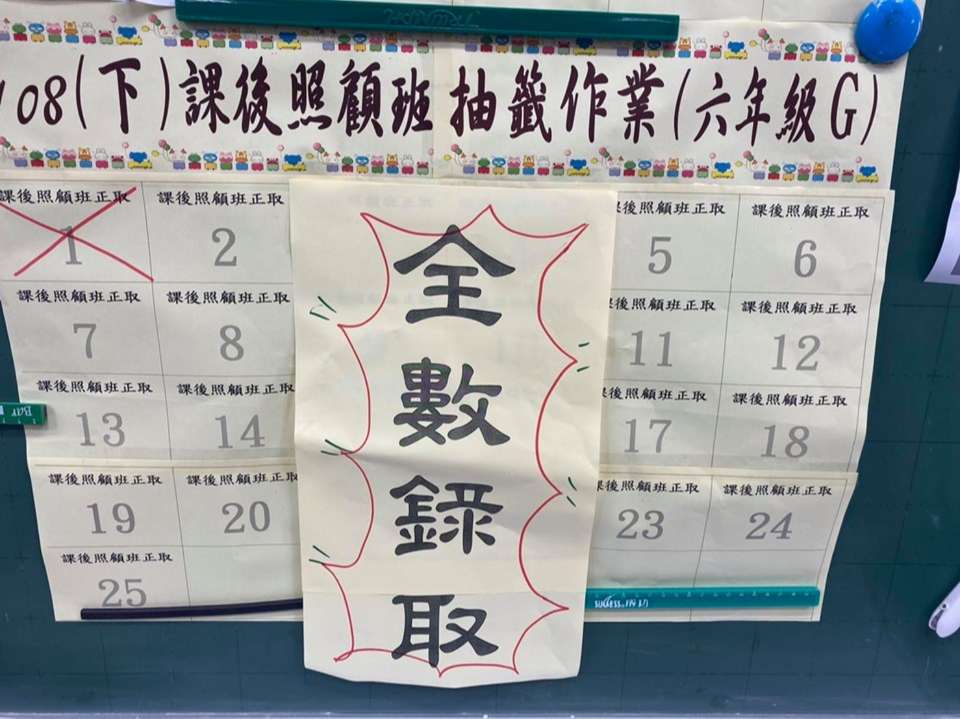 108(下)課後照顧班 抽籤作業(六年級G)
課後照顧班正取 課後照顧班正取 後照顧班正取 課後照顧班正取
1 2 5 6
課後照顧班正取 課後照顧班正取 課後照顧班正取 課後照顧班正取
7 8 11 12
課後照顧班正取 課後照顧班正取 課後照顧班正取 課後照顧班正取
13 14 17 18
課後照顧班正取 課後照顧班正取 後照顧班正取 課後照顧班正取
19 20 23 24
課後照顧班正取
25
全
數
錄
取
SUCCESS